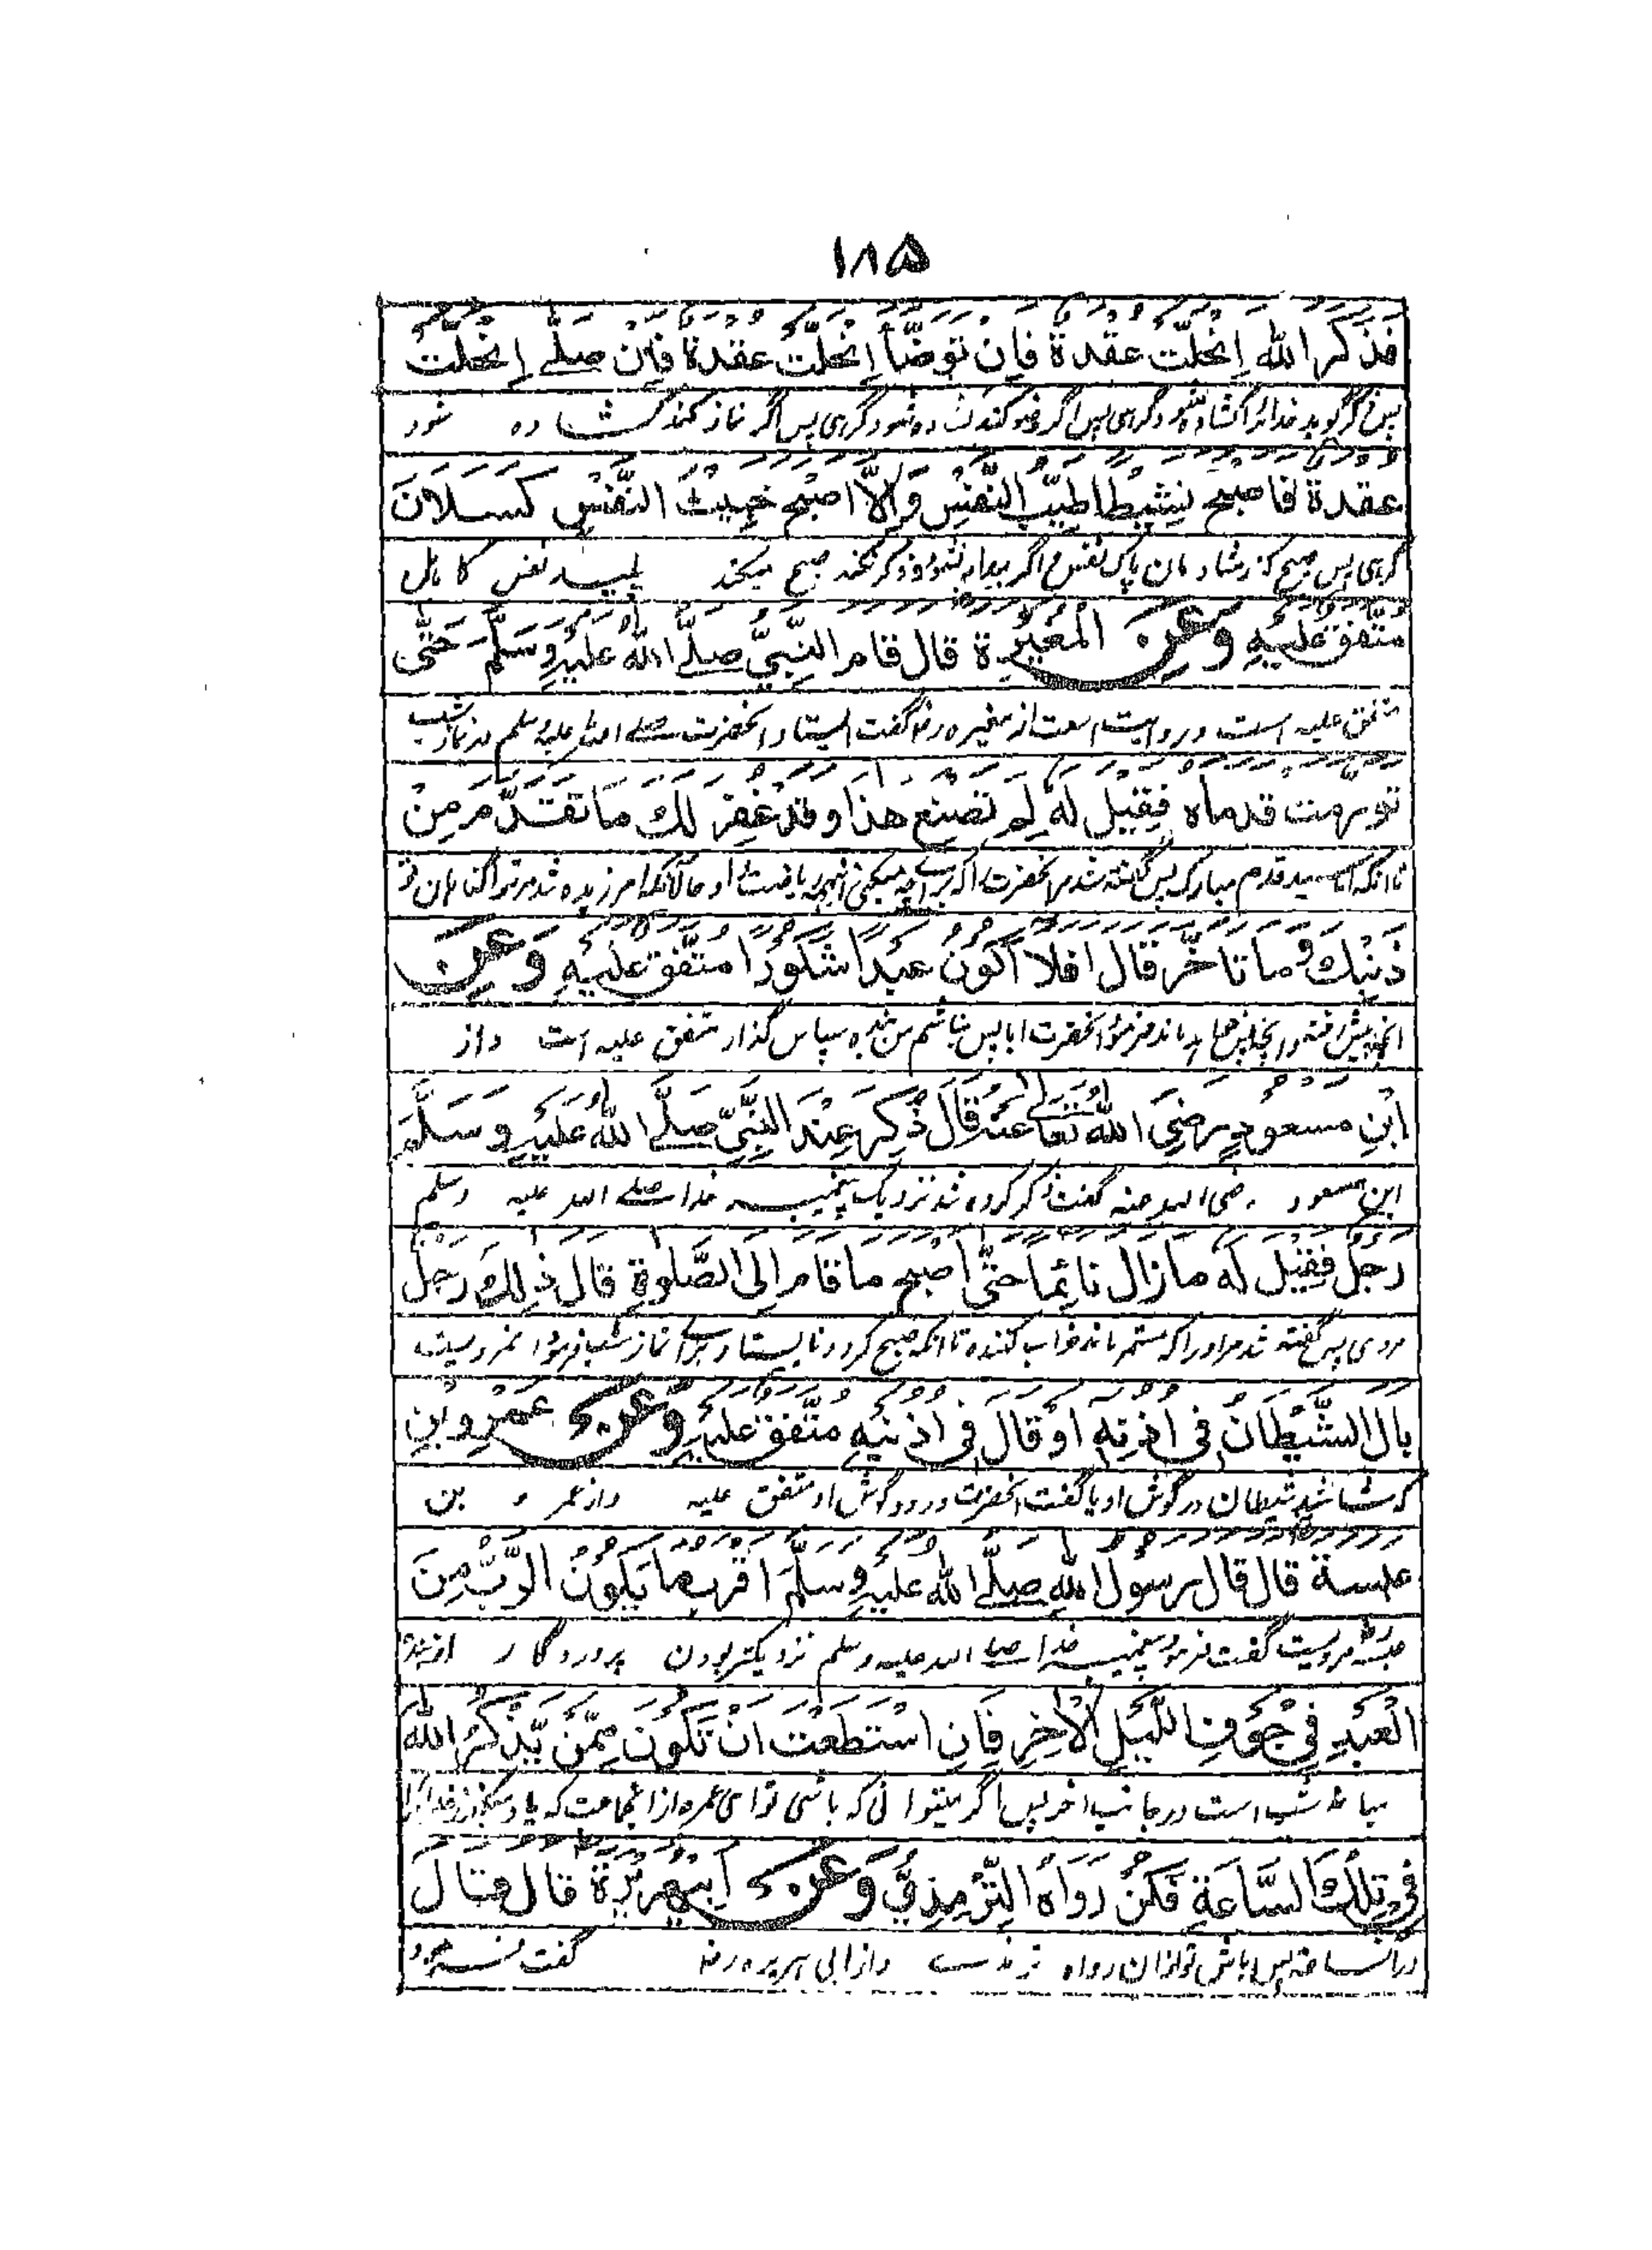 ۱۸۵
فَذَكَرَ اللّٰه اِنْحَلَّتْ عُقْدَةٌ فاِن تَوَضَّأَ اِنْحَلَّتْ عقدة فاِن صلّے اِنحَلَّتْ
پس گر گوید خدا را کشاده شود گرهی پس اگر وضو کند کشاده شود گرهی پس اگر نماز کند کشاده شود
عقدة فاصبح نشِيْطًا طيّبَ النَّفْسِ وَاِلَّا اصْبح خبيثَ النَّفْسِ كَسْلَانَ
گرهی پس صبح کند شادمان پاک نفس و اگر بیدار نشود و ذکر نکند صبح میکند پلید نفس کاهل
متّفق عليْهِ وَعَنِ الْمغيْرة قال قام النَّبِيُّ صلَّے اللّٰه عليْهِ وَسَلَّمَ حَتّٰى
متفق علیه است و روایت است از مغیره رضا گفت ایستاد آنحضرت صلے الله علیه وسلم در نماز شب
تورمت قدماه فقيْل لهٗ لِمَ تَصْنع هذا وقد غُفِرَ لك مَا تَقَدَّمَ مِنْ
تا آنکه آماسید قدم مبارک پس گفته شد مر آنحضرت را که برای چه میکنی اینهمه ریاضت را و حالانکه آمرزیده شد مر ترا گناهان تو
ذَنْبك وما تاخّر قال افلا اَكُوْنُ عَبْدًا شَكُوْرًا متّفق عليْهِ وَعَنِ
آنچه پیش رفته و آنچه پس مانده فرمود آنحضرت آیا پس نباشم من بنده سپاس گذار متفق علیه است و از
ابْنِ مسعودٍ رضِيَ اللّٰه تعالٰے عنه قَالَ ذُكِرَ عِنْدَ النَّبِيِّ صَلَّے اللّٰه عَليْهِ وسَلَّمَ
ابن مسعود رضی الله عنه گفت ذکر کرده شد نزدیک پیغمبر خدا صلے الله علیه وسلم
رَجُلٌ فقيْل لَه ما زال نائِمًا حتّٰى اَصْبح ما قام اِلى الصَّلٰوة قال ذٰلِكَ رَجُل
مردی پس گفته شد مر او را که مستمر ماند خواب کننده تا آنکه صبح کرد و نایستاد برای نماز شب فرمود آن مردیست
بال الشَّيْطَانُ فى اذنه اَوْ قَالَ فِى اُذنيْهِ متّفق عليْهِ وعَنْ عَمْرِو بْنِ
که شاشید شیطان در گوش او یا گفت آنحضرت در دو گوش او متفق علیه و از عمر و بن
عبسة قال قال رسول اللّٰه صلَّے اللّٰه عليْهِ وسلَّمَ اَقْرَب ما يَكُوْنُ الرَّبُّ مِنَ
عبسه مرویست گفت فرمود پیغمبر خدا صلے الله علیه وسلم نزدیکتر بودن پروردگار از بنده
الْعَبْدِ فِى جَوْفِ اللَّيْلِ الْاٰخِرِ فَاِنِ اسْتَطَعْتَ اَنْ تَكُوْنَ مِمَّنْ يَّذْكُرُ اللّٰهَ
میانه شب است در جانب آخر پس اگر میتوانی که باشی تو ای عمرو از انجماعت که یاد میکنند خدا را
فِى تِلْكَ السَّاعَةِ فَكُنْ رَوَاهُ التِّرْمِذِيُّ وَعَنْ اَبِى هُرَيْرَة قال قال
در آن ساعت پس باش تو از آن رواه ترمذی و از ابی هریره رضا گفت فرمود